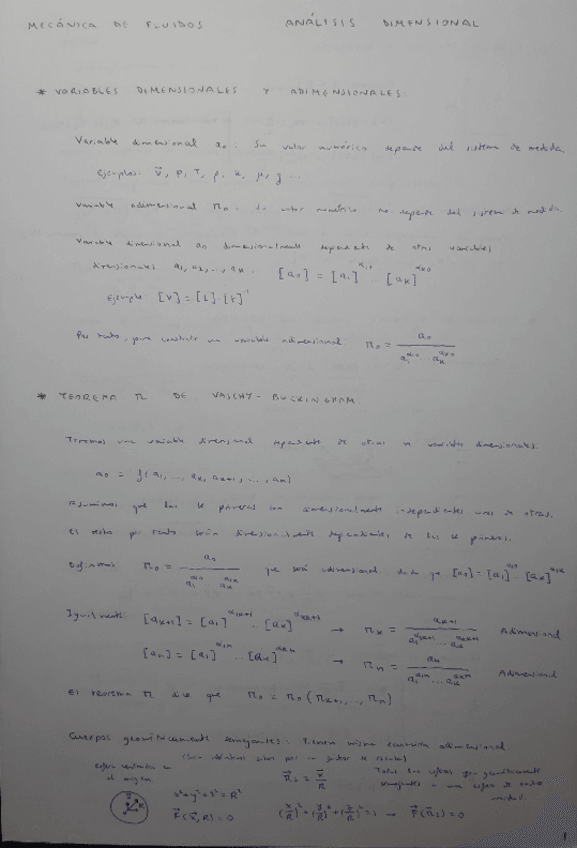 MECÁNICA DE FLUIDOS ANÁLISIS DIMENSIONAL
* VARIABLES DIMENSIONALES Y ADIMENSIONALES.
Variable dimensional a₀: Su valor numérico depende del sistema de medida.
Ejemplos: v⃗, p, T, ρ, μ, g ...
Variable adimensional π₀: Su valor numérico no depende del sistema de medida.
Variable dimensional a₀ dimensionalmente dependiente de otras variables
dimensionales a₁, a₂, ..., aₖ. [a₀] = [a₁]^α₁₀ ... [aₖ]^αₖ₀
Ejemplo: [V] = [L]·[t]⁻¹
Por tanto, para construir una variable adimensional: π₀ = a₀ / (a₁^α₁₀ ... aₖ^αₖ₀)
* TEOREMA π DE VASCHY-BUCKINGHAM.
Tenemos una variable dimensional dependiente de otras n variables dimensionales.
a₀ = f(a₁, ..., aₖ, aₖ₊₁, ..., aₙ)
Asumimos que las k primeras son dimensionalmente independientes unas de otras.
El resto por tanto serán dimensionalmente dependientes de las k primeras.
Definimos π₀ = a₀ / (a₁^α₁₀ ... aₖ^αₖ₀) que será adimensional dado que [a₀] = [a₁]^α₁₀ ... [aₖ]^αₖ₀
Igualmente: [aₖ₊₁] = [a₁]^α₁ₖ₊₁ ... [aₖ]^αₖₖ₊₁ → πₖ = aₖ₊₁ / (a₁^α₁ₖ₊₁ ... aₖ^αₖₖ₊₁) Adimensional
[aₙ] = [a₁]^α₁ₙ ... [aₖ]^αₖₙ → πₙ = aₙ / (a₁^α₁ₙ ... aₖ^αₖₙ) Adimensional
El teorema π dice que π₀ = π₀(πₖ₊₁, ..., πₙ)
Cuerpos geométricamente semejantes: Tienen misma ecuación adimensional.
(Son idénticos salvo por un factor de escala)
Esfera centrada en el origen
x² + y² + z² = R²
F(x⃗, R) = 0
π⃗₁ = x⃗/R
(x/R)² + (y/R)² + (z/R)² = 1 → F(π⃗₁) = 0
Todas las esferas son geométricamente semejantes a una esfera de radio unidad.
1